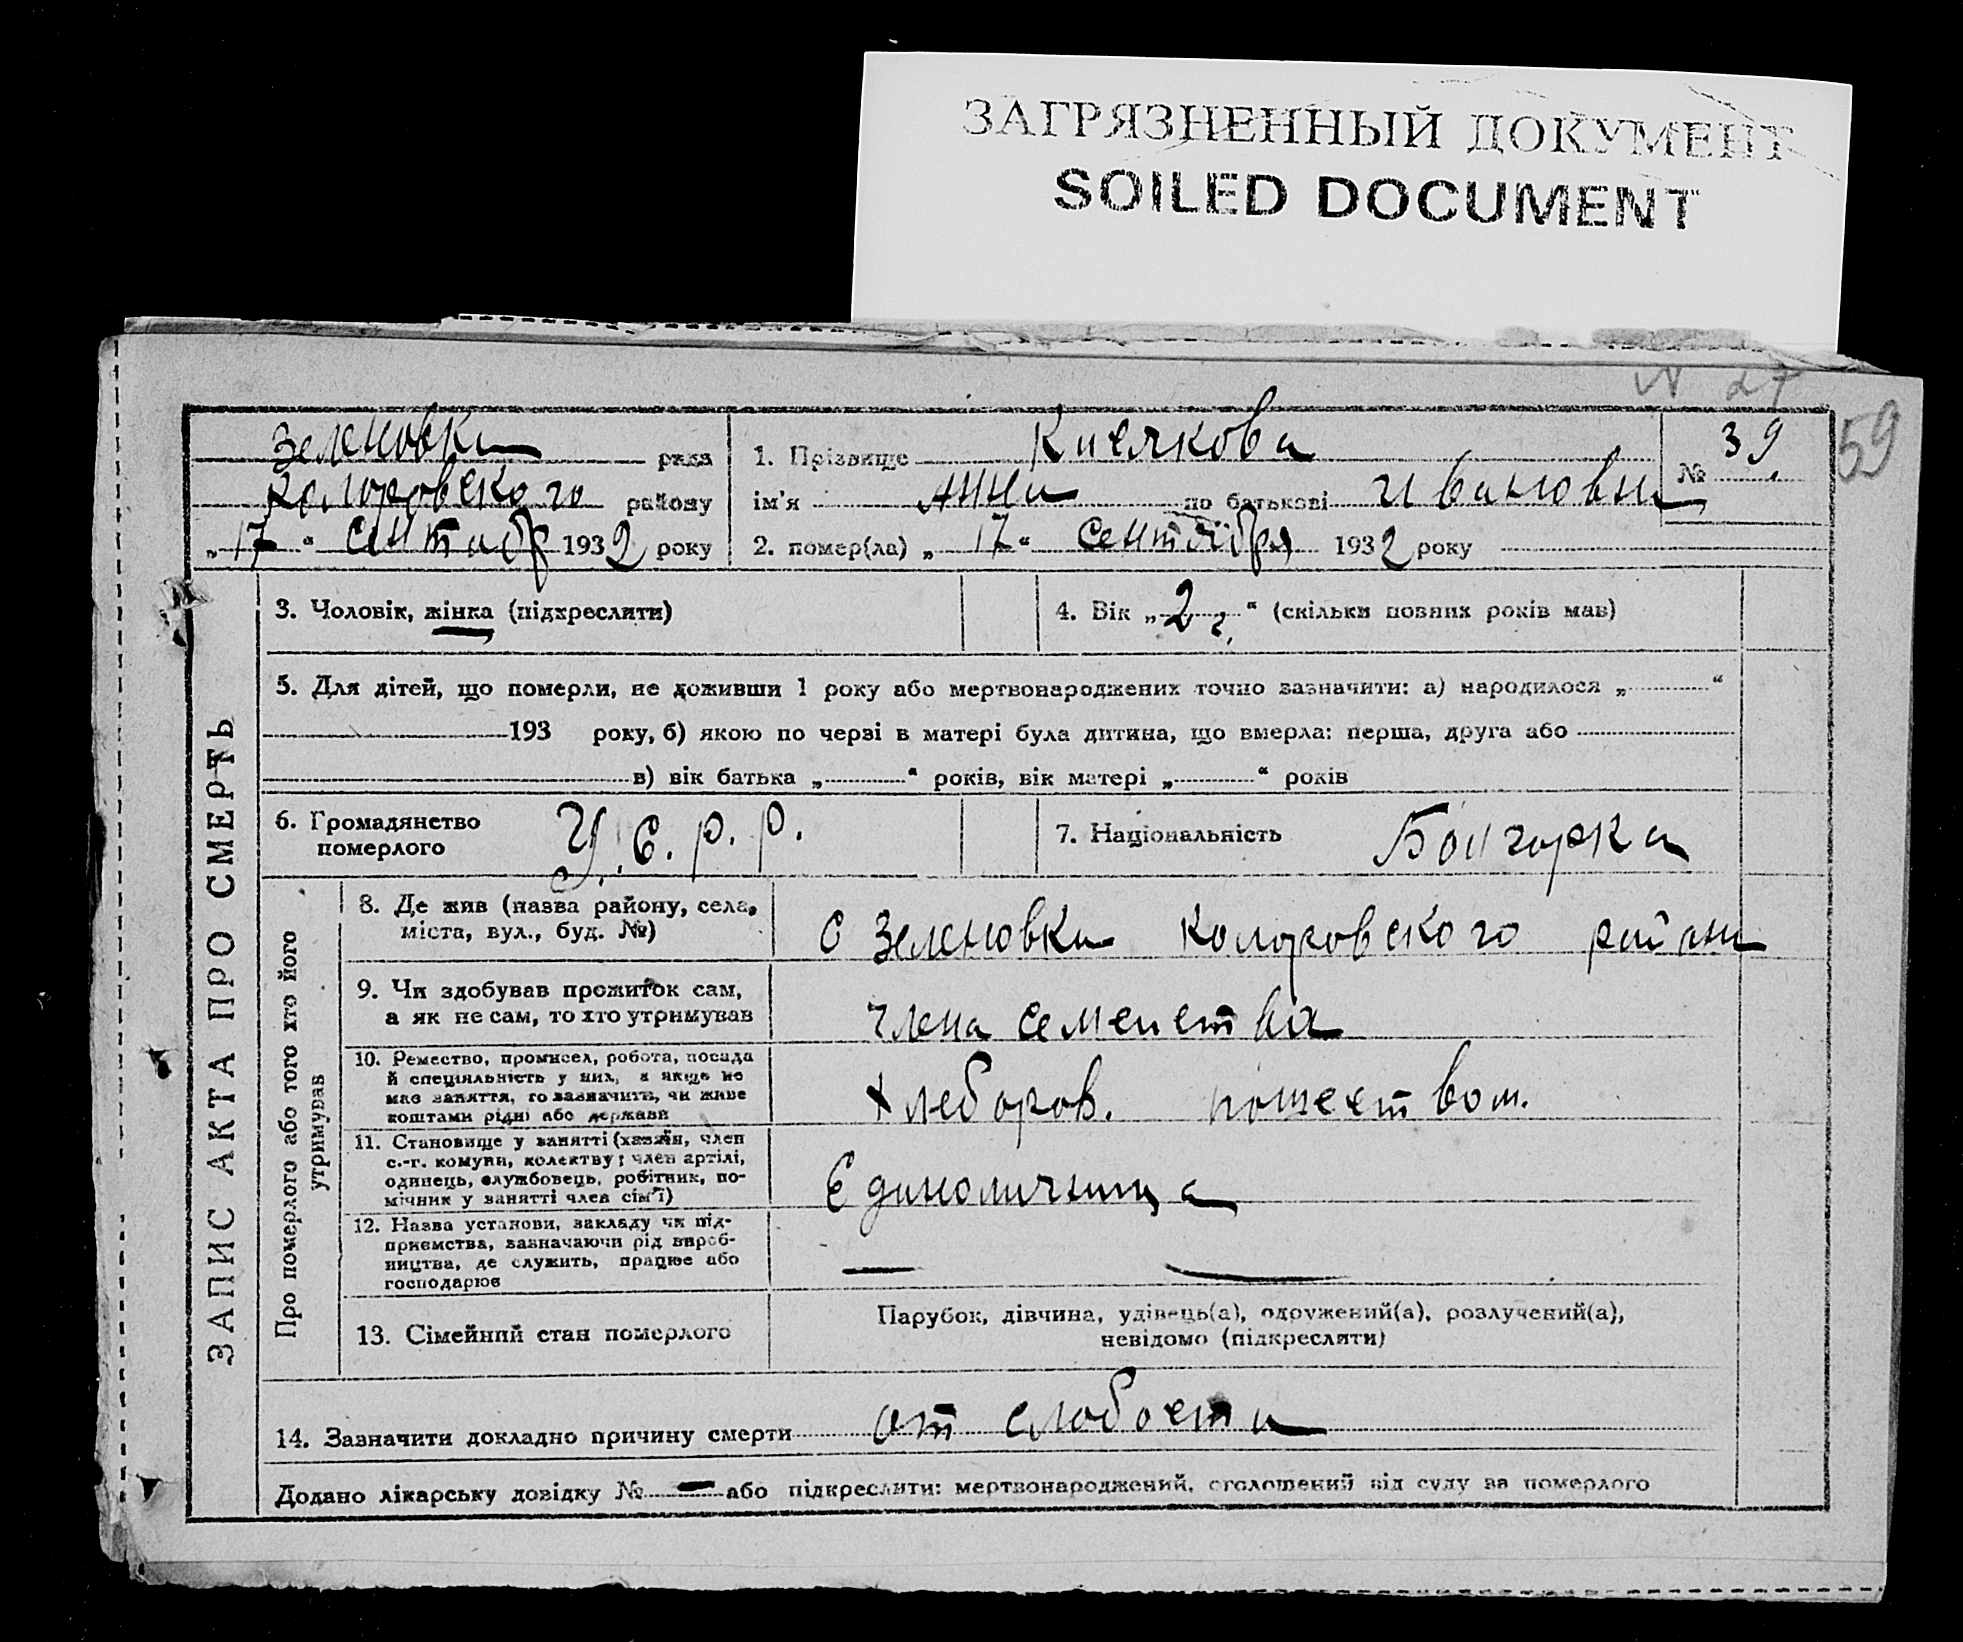 ЗАГРЯЗНЕННЫЙ ДОКУМЕНТ
SOILED DOCUMENT
59
ЗАПИС АКТА ПРО СМЕРТЬ
Зеленовка рада
Коларовского району
„17“ сентябр 1932 року
1. Прізвище Киселкова
№ 39
ім'я Анна по батькові Ивановна
2. помер(ла) „17“ сентября 1932 року
3. Чоловік, жінка (підкреслити)
4. Вік „2 г.“ (скільки повних років мав)
5. Для дітей, що померли, не доживши 1 року або мертвонароджених точно зазначити: а) народилося „ “
193 року, б) якою по черзі в матері була дитина, що вмерла: перша, друга або
в) вік батька „ “ років, вік матері „ “ років
6. Громадянство
померлого
У.С.Р.Р.
7. Національність Болгарка
Про померлого або того хто його
утримував
8. Де жив (назва району, села,
міста, вул., буд. №)
С Зеленовка Коларовского района
9. Чи здобував прожиток сам,
а як не сам, то хто утримував
члена семейства
10. Ремество, промисел, робота, посада
й спеціяльність у них, а якщо не
має заняття, то зазначити, чи живе
коштами рідні або держави
Хлебороб.
11. Становище у занятті (хазяїн, член
с.-г. комуни, колективу; член артілі,
одинець, службовець, робітник, по-
мічник у занятті член сім'ї)
Единоличница
12. Назва установи, закладу чи під-
приємства, зазначаючи рід вироб-
ництва, де служить, працює або
господарює
— —
13. Сімейний стан померлого
Парубок, дівчина, удівець(а), одружений(а), розлучений(а),
невідомо (підкреслити)
14. Зазначити докладно причину смерти от слабости
Додано лікарську довідку № — або підкреслити: мертвонароджений, оголошений від суду за померлого